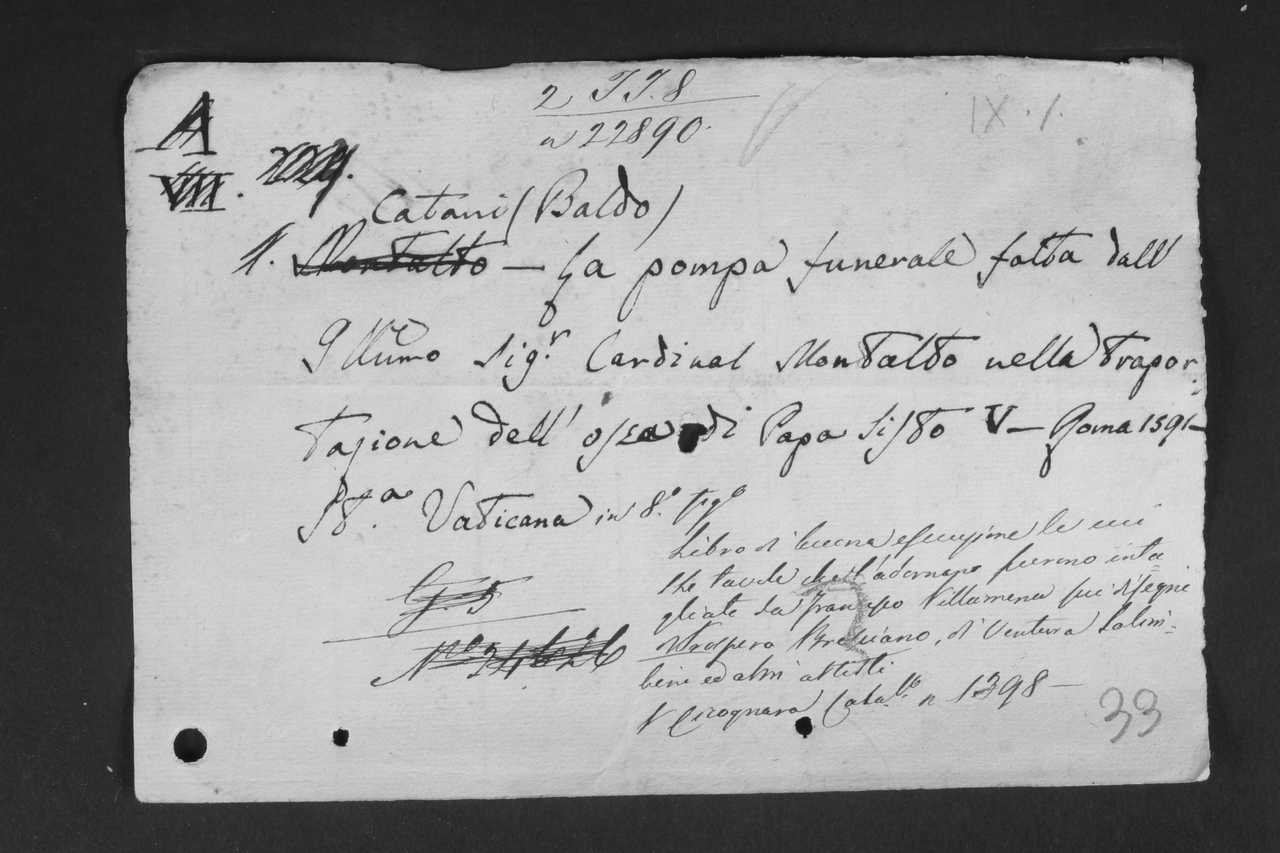 2 II. 8
n 22890.
IX. 1.
A
VIII.
Catani (Baldo)
1. Montalto — La pompa funerale fatta dall
Illmo Sigr. Cardinal Montalto nella trapor
tazione dell' ossa di Papa Sisto V — Roma 1591 —
Sta. Vaticana in 8.o figo
Libro di buona esecuzione le cui
tavole che l'adornano furono inta=
gliate da Francesco Villamena sui disegni
Prospero Bresciano, di Ventura Salim=
beni ed altri artisti
V Cicognara Catalo. n 1398 —
G. 5
No 24626
33